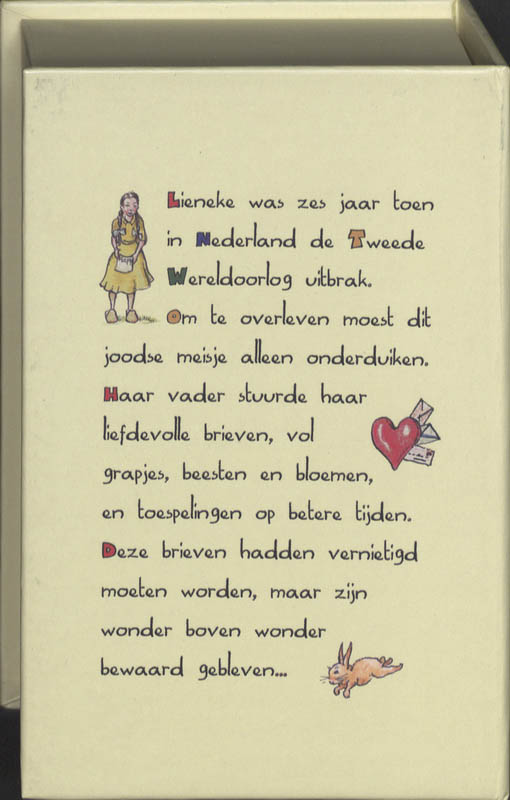 Lieneke was zes jaar toen
in Nederland de Tweede
Wereldoorlog uitbrak.
Om te overleven moest dit
joodse meisje alleen onderduiken.
Haar vader stuurde haar
liefdevolle brieven, vol
grapjes, beesten en bloemen,
en toespelingen op betere tijden.
Deze brieven hadden vernietigd
moeten worden, maar zijn
wonder boven wonder
bewaard gebleven...